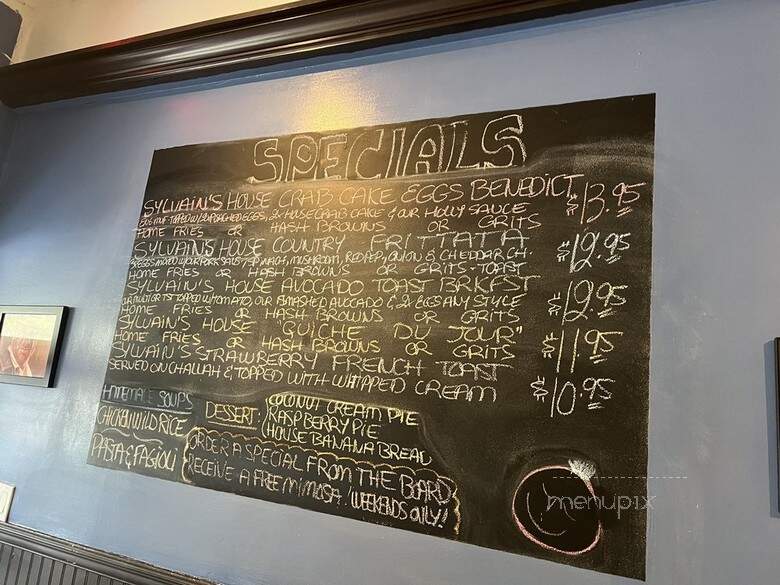 SPECIALS
SYLVAIN'S HOUSE CRAB CAKE EGGS BENEDICT $13.95
ENG MUF TOPPED W/2 POACHED EGGS, 2 HOUSE CRAB CAKE & OUR HOLLY SAUCE
HOME FRIES OR HASH BROWNS OR GRITS
SYLVAIN'S HOUSE COUNTRY FRITTATA $12.95
EGGS MIXED W/ MUSHROOM, RED PEP, ONION & CHEDDAR CH.
HOME FRIES OR HASH BROWNS OR GRITS - TOAST
SYLVAIN'S HOUSE AVOCADO TOAST BRKFST $12.95
TOPPED W/TOMATO, OUR SMASHED AVOCADO & 2 EGGS ANY STYLE
HOME FRIES OR HASH BROWNS OR GRITS
SYLVAIN'S HOUSE "QUICHE DU JOUR" $11.95
HOME FRIES OR HASH BROWNS OR GRITS
SYLVAIN'S STRAWBERRY FRENCH TOAST $10.95
SERVED ON CHALLAH & TOPPED WITH WHIPPED CREAM
HOMEMADE SOUPS
CHICKEN WILD RICE
PASTA & FAGIOLI
DESSERT: COCONUT CREAM PIE
RASPBERRY PIE
HOUSE BANANA BREAD
ORDER A SPECIAL FROM THE BOARD
RECEIVE A FREE MIMOSA! WEEKENDS ONLY!
menupix